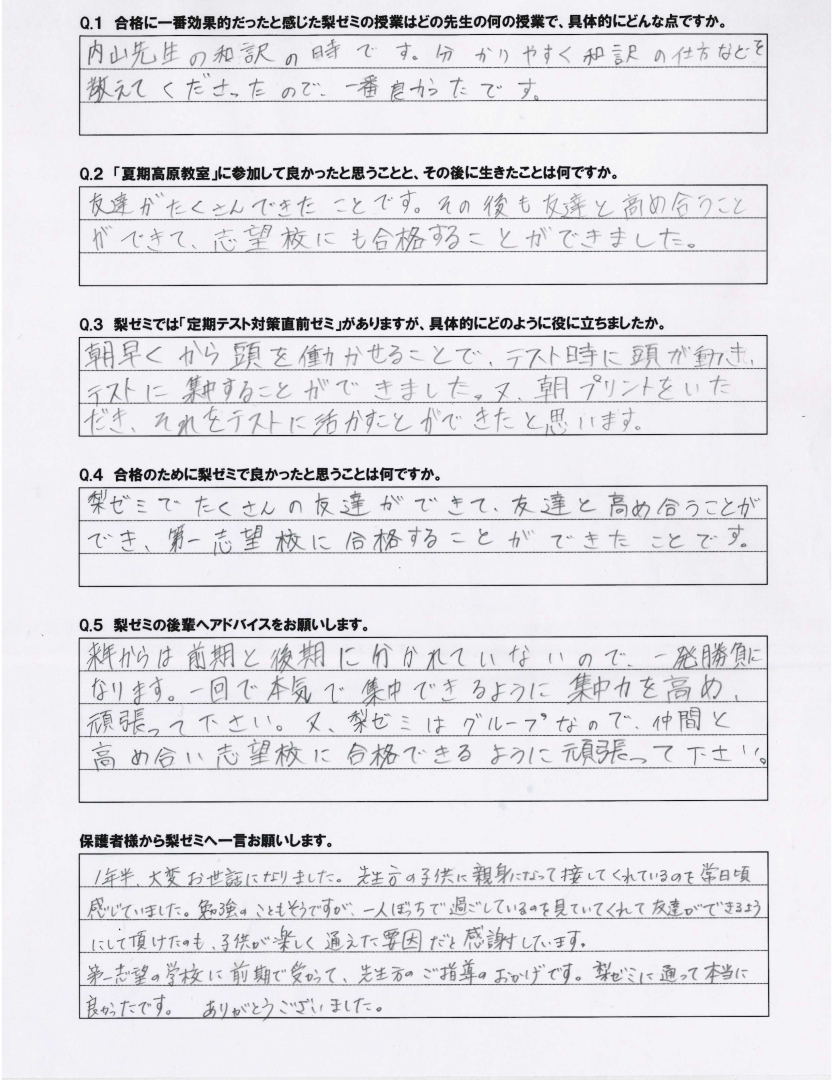 Q.1 合格に一番効果的だったと感じた梨ゼミの授業はどの先生の何の授業で、具体的にどんな点ですか。
内山先生の和訳の時です。分かりやすく和訳の仕方などを
教えてくださったので、一番良かったです。
Q.2 「夏期高原教室」に参加して良かったと思うことと、その後に生きたことは何ですか。
友達がたくさんできたことです。その後も友達と高め合うこと
ができて、志望校にも合格することができました。
Q.3 梨ゼミでは「定期テスト対策直前ゼミ」がありますが、具体的にどのように役に立ちましたか。
朝早くから頭を働かせることで、テスト時に頭が動き、
テストに集中することができました。又、朝プリントをいた
だき、それをテストに活かすことができたと思います。
Q.4 合格のために梨ゼミで良かったと思うことは何ですか。
梨ゼミでたくさんの友達ができて、友達と高め合うことが
でき、第一志望校に合格することができたことです。
Q.5 梨ゼミの後輩へアドバイスをお願いします。
来年からは前期と後期に分かれていないので、一発勝負に
なります。一回で本気で集中できるように集中力を高め、
頑張って下さい。又、梨ゼミはグループなので、仲間と
高め合い志望校に合格できるように頑張って下さい。
保護者様から梨ゼミへ一言お願いします。
1年半、大変お世話になりました。先生方の子供に親身になって接してくれているのを常日頃
感じていました。勉強のこともそうですが、一人ぼっちで過ごしているのを見ていてくれて友達ができるよう
にして頂けたのも、子供が楽しく通えた要因だと感謝しています。
第一志望の学校に前期で受かって、先生方のご指導のおかげです。梨ゼミに通って本当に
良かったです。 ありがとうございました。